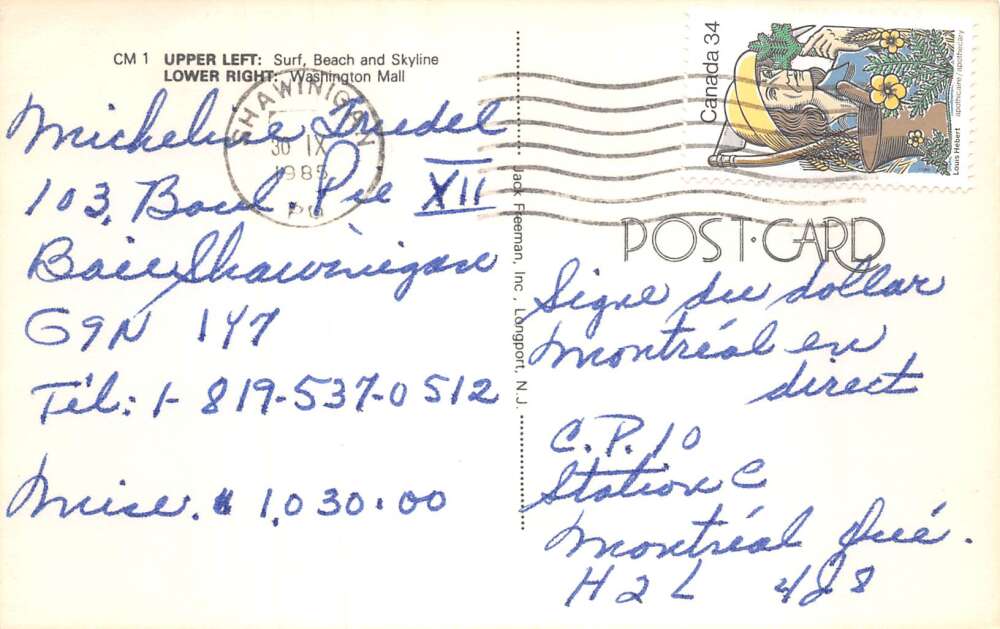 CM 1 UPPER LEFT: Surf, Beach and Skyline
LOWER RIGHT: Washington Mall
SHAWINIGAN
30 IX
1985
PQ
Micheline Trudel
103, Boul. Pie XII
Baie Shawinigan
G9N 1Y7
Tél: 1-819-537-0512
Mise. $ 1,030.00
Jack Freeman, Inc., Longport, N.J.
Canada 34
Louis Hébert
apothicaire/apothecary
POST·CARD
Signe du dollar
Montréal en
direct
C.P. 10
Station C
Montréal Qué.
H2L